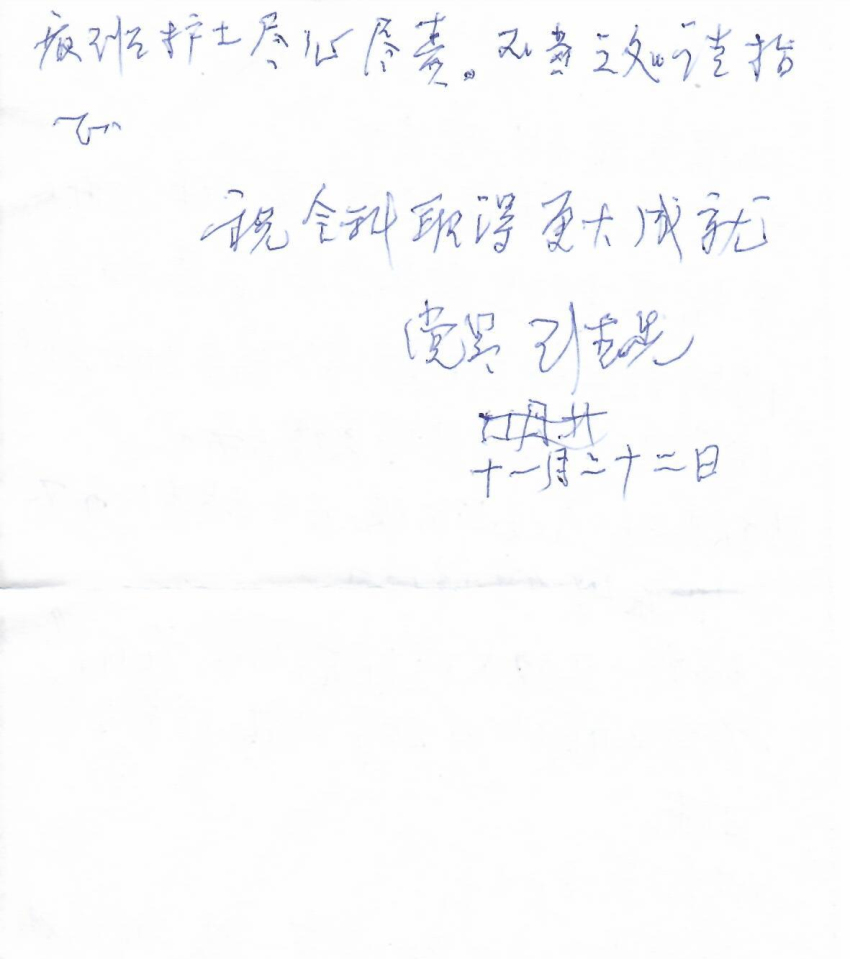 夜班护士尽心尽责。不当之处请指
正
祝全科取得更大成就
党员 刘志先
十一月二十二日